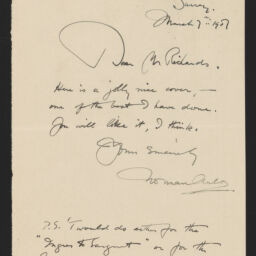 Surrey.
March 7th 1907
Dear Mr Richards.
Here is a jolly nice cover, —
one of the best I have done.
You will like it, I think.
Yours Sincerely
Norman
P.S. 'Twould do either for the
"Ingres to Sargent" or for the